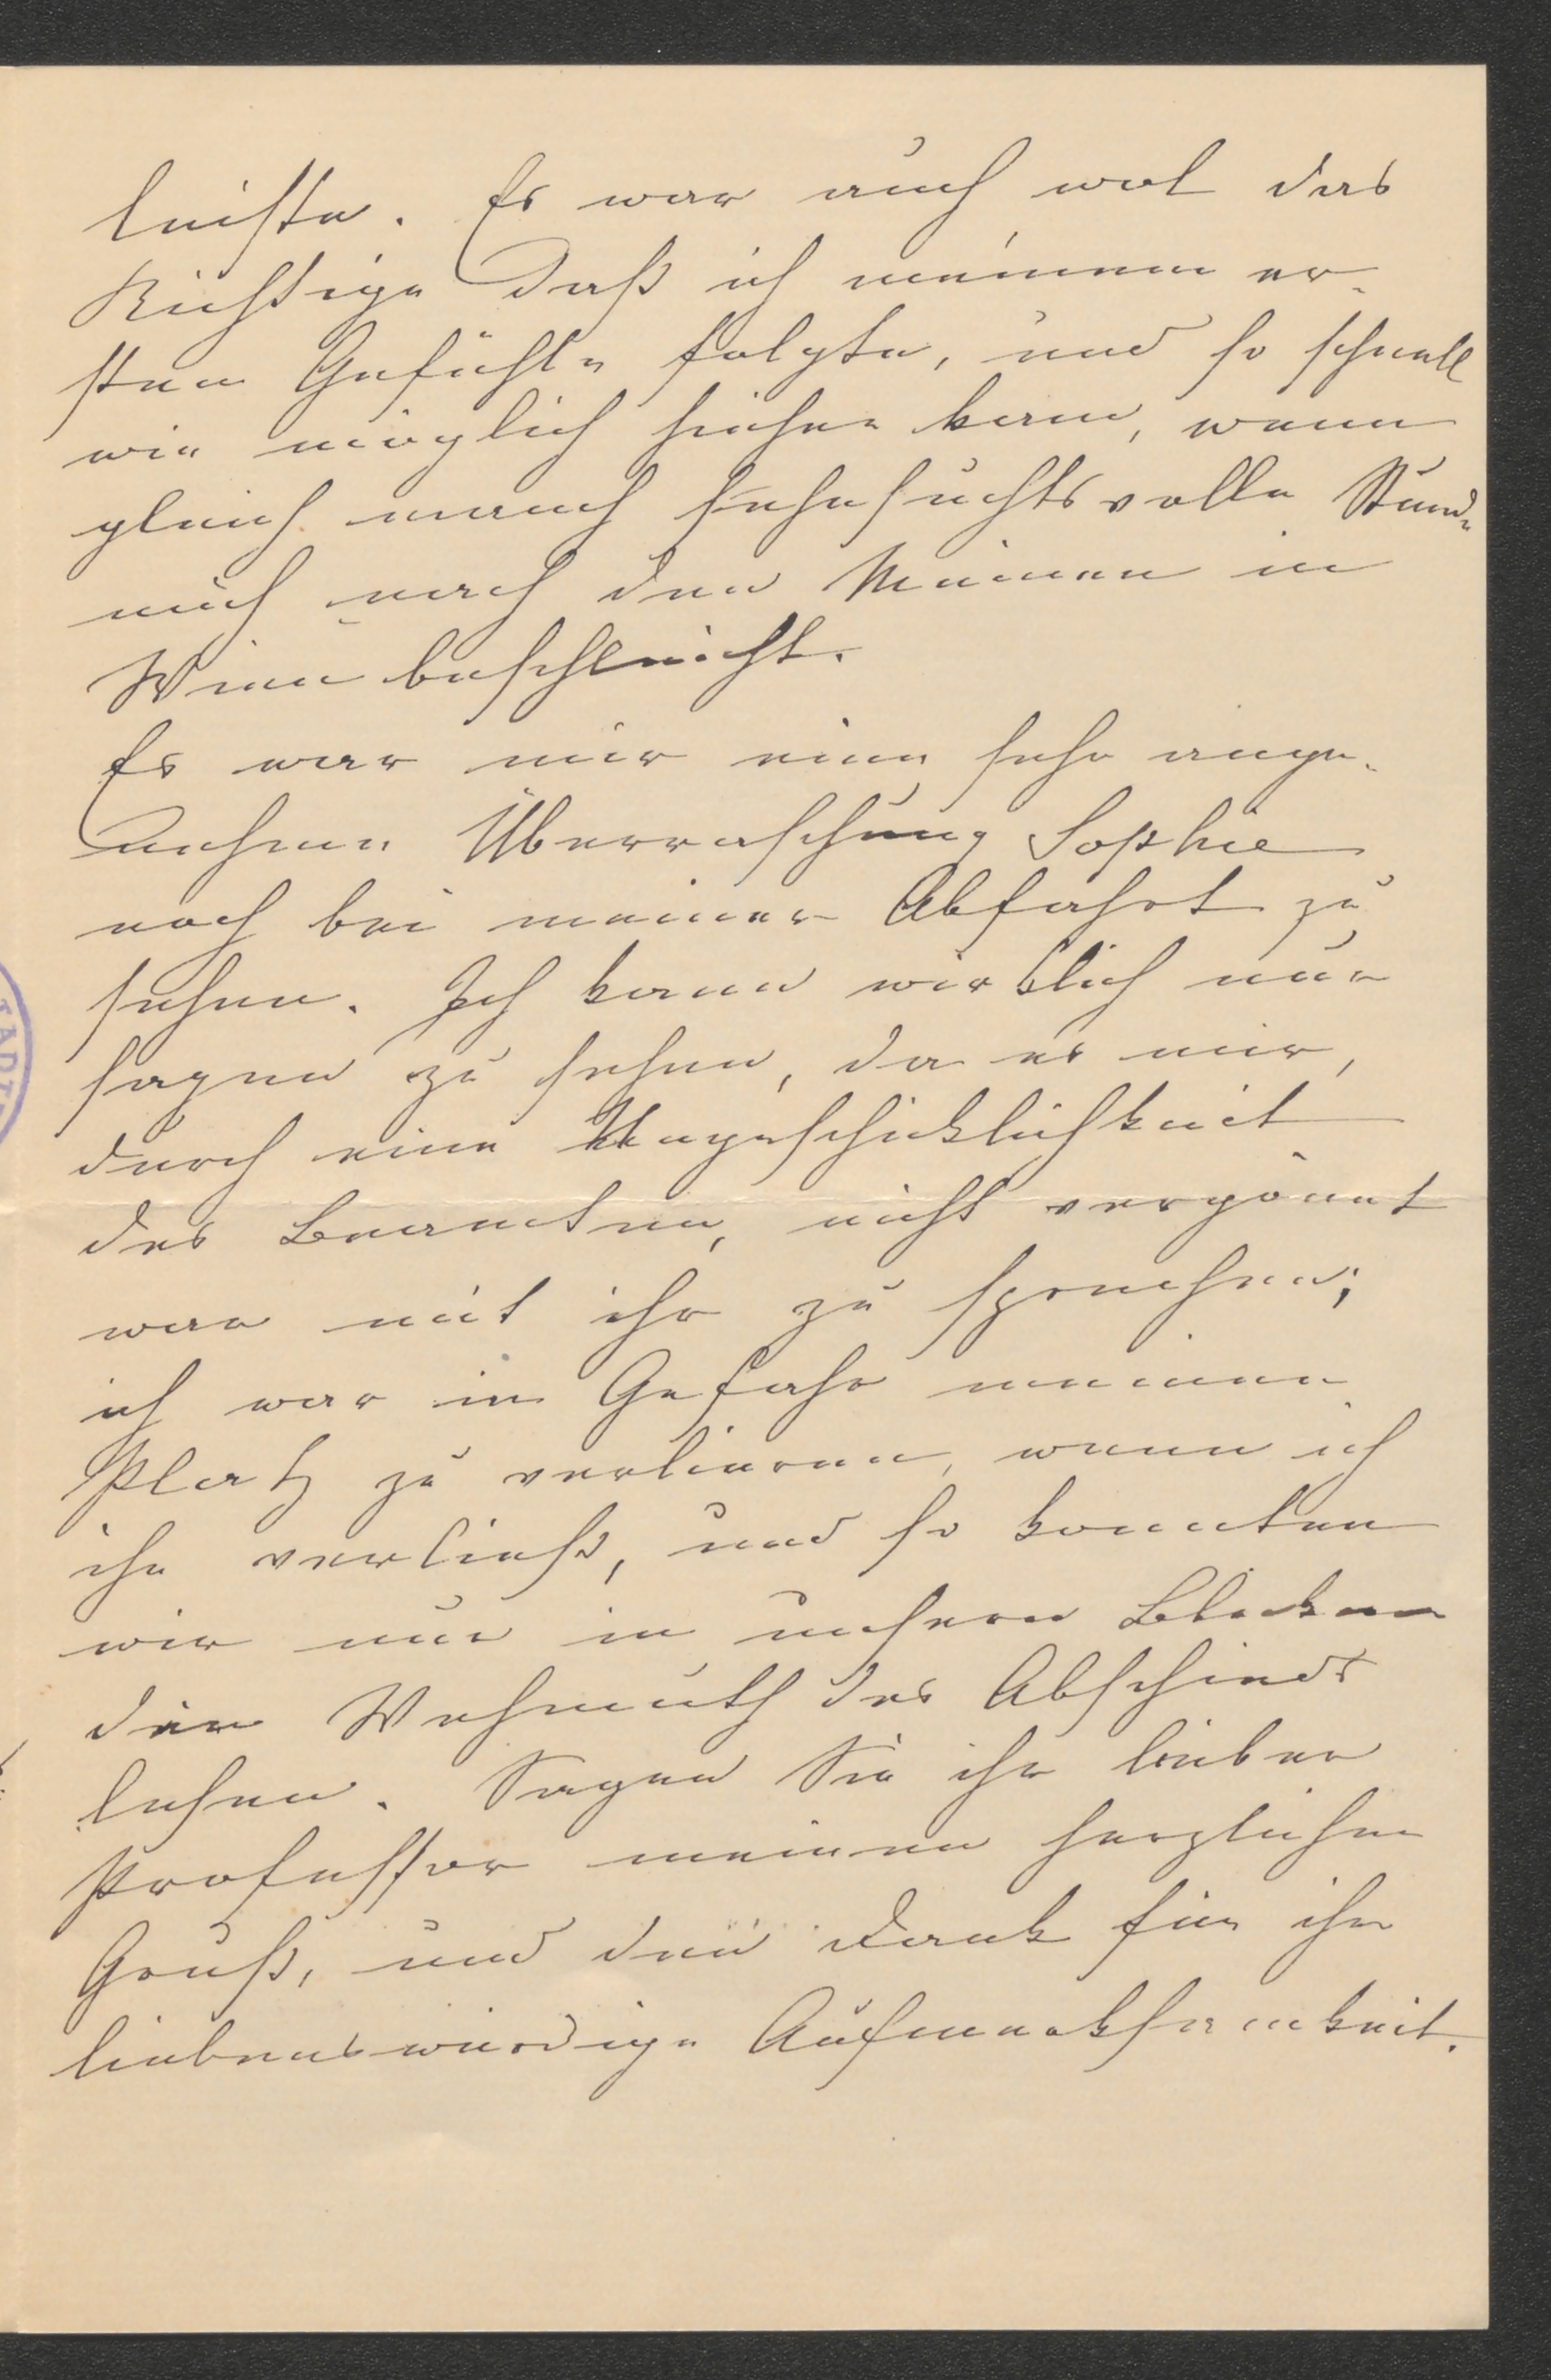 leiste. Es war auch wol das
Richtige daß ich meinem er-
sten Gefühle folgte, und so schnell
wie möglich hieher kam, wenn
gleich manch sehnsuchtsvolle Stunde
mich nach den Meinen in
Wien beschleicht.
Es war mir eine sehr ange-
nehme Überraschung Sophie
noch bei meiner Abfahrt zu
sehen. Ich kann wirklich nur
sagen zu sehen, da es mir,
durch eine Ungeschicklichkeit
des Beamten, nicht vergönnt
war mit ihr zu sprechen;
ich war in Gefahr meinen
Platz zu verlieren, wenn ich
ihn verließ, und so konnten
wir nur in unsern Blicken
die Wehmuth des Abschieds
lesen. Sagen Sie ihr lieber
Professor meinen herzlichen
Gruß, und den Dank für ihre
liebenswürdige Aufmerksamkeit.
TADT